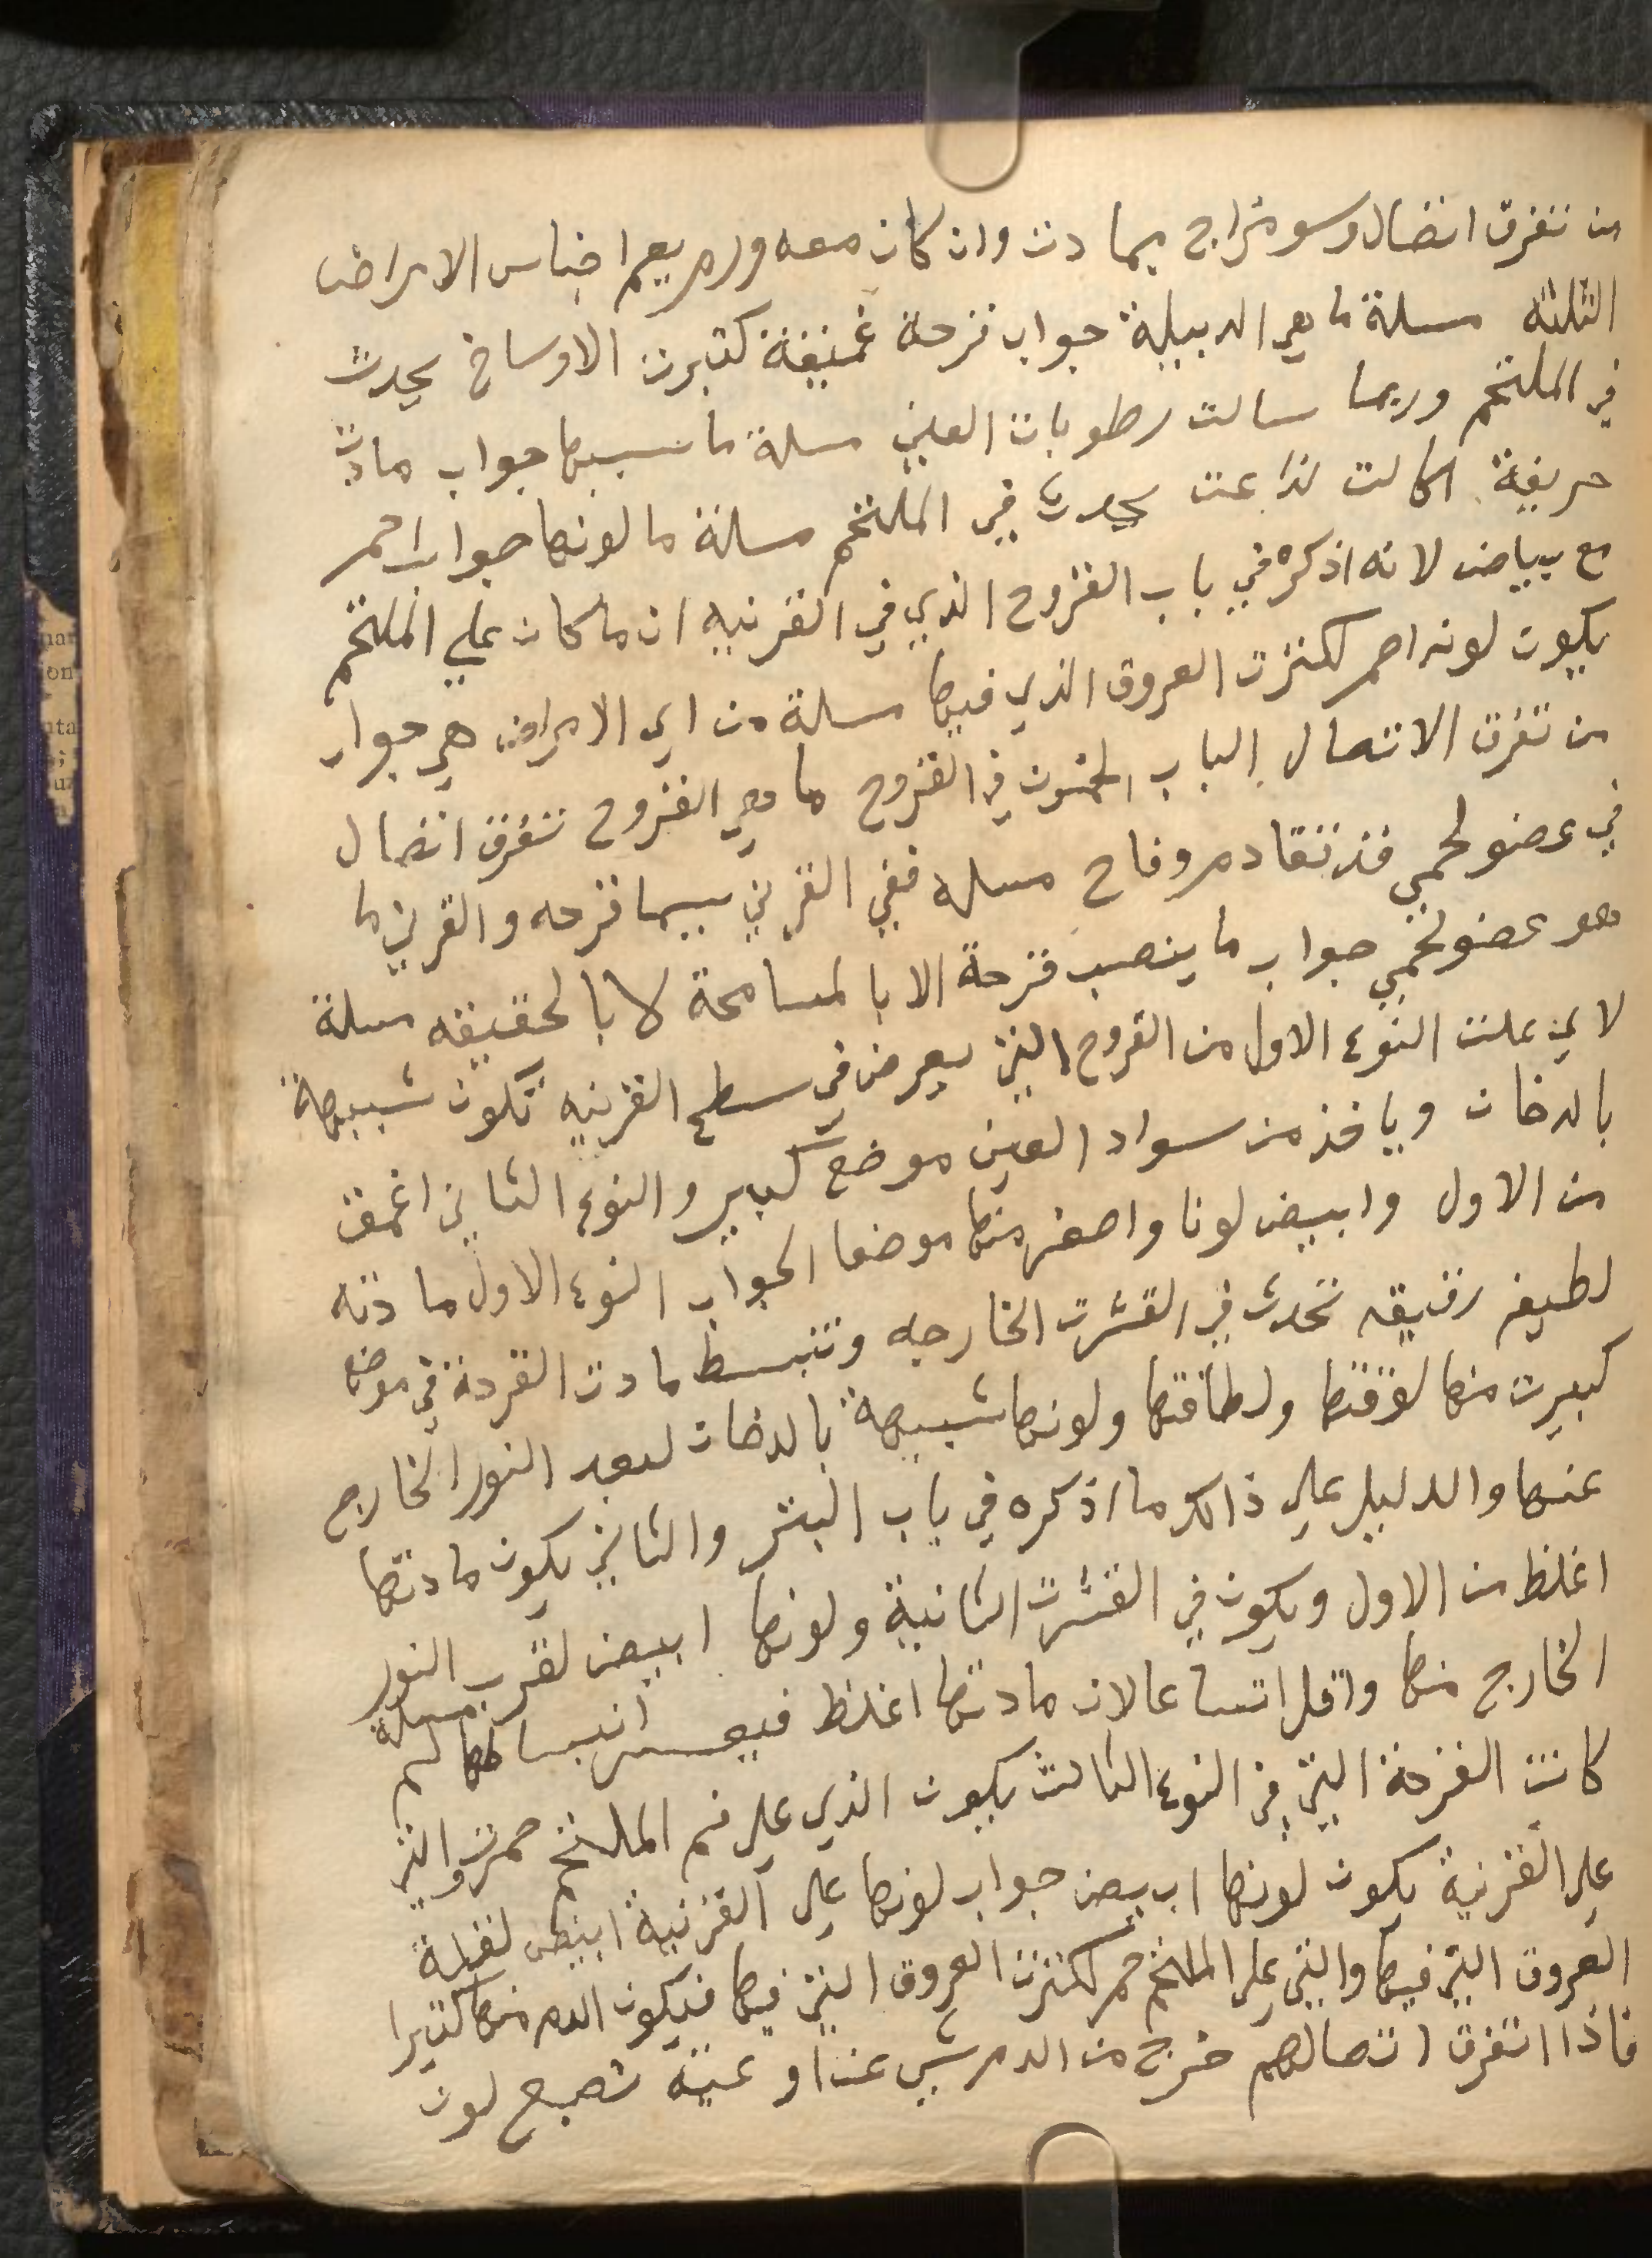 من تفرق اتصال وسو مزاج بمادت وان كان معه ورم يعم اجناس الامراض
الثلثه مسلة ما هي الدبيلة جواب قرحة غميقة كثيرت الاوساخ يحدث
في الملتحم وربما سالت رطوبات العين مسلة ما سببها جواب مادت
حريفة اكالت لذاعت يحدث في الملتحم مسلة ما لونها جواب احمر
مع بياض لانه اذكره في باب القروح الذي في القرنيه ان ما كان علي الملتحم
يكون لونه احمر لكثرت العروق الذي فيها مسلة من اي الامراض هي جواب
من تفرق الاتصال الباب الخمسون في القروح ما هي القروح تفرق اتصال
في عضو لحمي قد تقادم وقاح مسله ففي القرني سيما قرحه والقرني ما
هو عضو لحمي جواب ما ينصب قرحة الا بالمسامحة لا بالحقيقه مسلة
لاي علت النوع الاول من القروح التي يعرض في سطح القرنيه تكون شبيهة
بالدخان وياخذ من سواد العين موضع كبير والنوع الثاني اغمق
من الاول وابيض لونا واصغر منها موضعا الجواب النوع الاول مادته
لطيفه رقيقه تحدث في القشرت الخارجه وتنبسط مادت القرحة في موضع
كبيرت منها لرقتها ولطافتها ولونها شبيهة بالدخان لبعد النور الخارج
عنها والدليل علي ذالك ما اذكره في باب البثر والثاني يكون مادتها
اغلظ من الاول ويكون في القشرت الثانية ولونها ابيض لقرب النور
الخارج منها واقل اتساعا لان مادتها اغلظ فيعسر انبساطها مسلة لم
كانت القرحة التي في النوع الثالث يكون الذي علي فم الملتحم حمرت والتي
علي القرنية يكون لونها ابيض جواب لونها علي القرنية ابيض لقلة
العروق التي فيها والتي علي الملتحم حمر لكثرت العروق التي فيها فيكون الدم منها كثيرا
فاذا اتفرق اتصالهم خرج من الدم شي عند او عيته تصبع لون